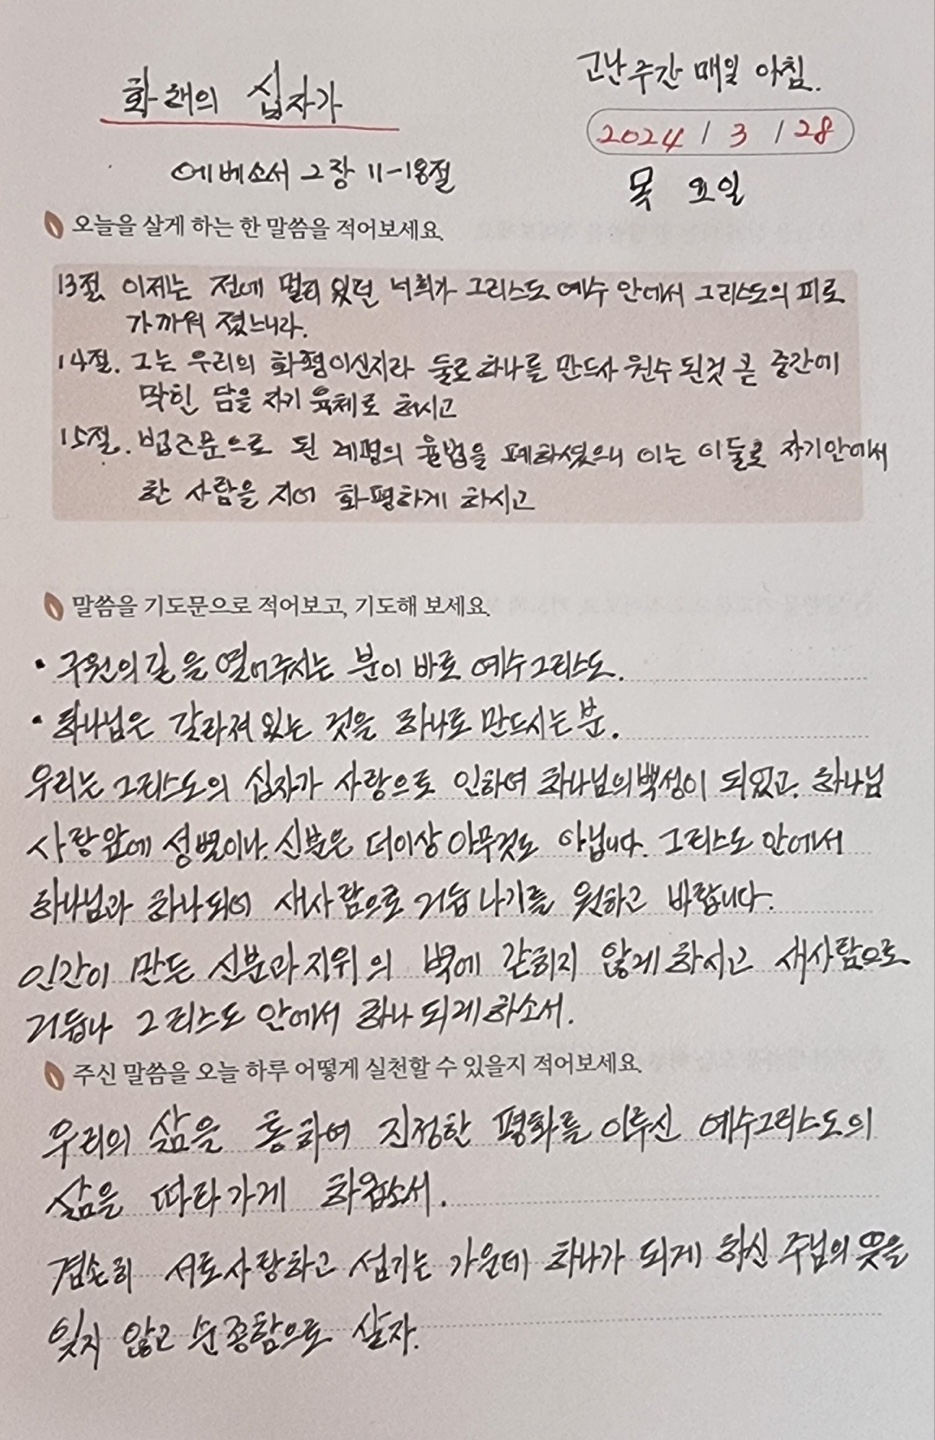 고난주간 매일 아침.
화해의 십자가
2024 / 3 / 28
에베소서 2장 11-18절
목요일
오늘을 살게 하는 한 말씀을 적어보세요.
13절. 이제는 전에 멀리 있던 너희가 그리스도 예수 안에서 그리스도의 피로
가까워 졌느니라.
14절. 그는 우리의 화평이신지라 둘로 하나를 만드사 원수 된것 곧 중간에
막힌 담을 자기 육체로 허시고
15절. 법조문으로 된 계명의 율법을 폐하셨으니 이는 이 둘로 자기안에서
한 사람을 지어 화평하게 하시고
말씀을 기도문으로 적어보고, 기도해 보세요.
• 구원의 길을 열어주시는 분이 바로 예수그리스도.
• 하나님은 갈라져 있는 것을 하나로 만드시는 분.
우리는 그리스도의 십자가 사랑으로 인하여 하나님의 백성이 되었고, 하나님
사랑앞에 성별이나, 신분은 더이상 아무것도 아닙니다. 그리스도 안에서
하나님과 하나되어 새사람으로 거듭나기를 원하고 바랍니다.
인간이 만든 신분과 지위의 벽에 갇히지 않게 하시고 새사람으로
거듭나 그리스도 안에서 하나 되게 하소서.
주신 말씀을 오늘 하루 어떻게 실천할 수 있을지 적어보세요.
우리의 삶을 통하여 진정한 평화를 이루신 예수그리스도의
삶을 따라가게 하옵소서.
겸손히 서로 사랑하고 섬기는 가운데 하나가 되게 하신 주님의 뜻을
잊지 않고 순종함으로 살자.